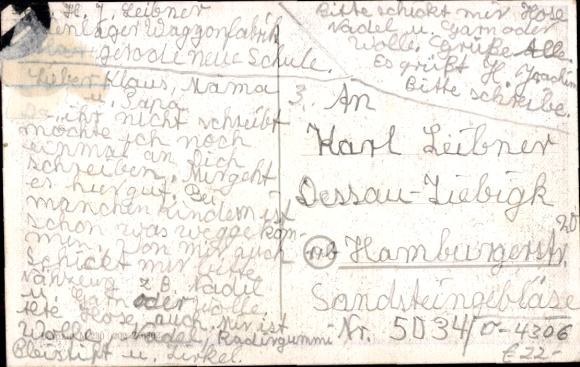 H. J. Leibner
Waggonfabrik
gerodineue Schule.
Lieber Klaus, Mama
u. Papa
Da ihr nicht schreibt
möchte ich noch
einmal an Dich
schreiben. Mir geht
es hier gut. Bei
manchen Kindern ist
schon was weggekom-
men. Von mir auch
Schickt mir bitte
z. B. Nadel
u. Garn oder Wolle
Hose auch. Mir ist
Wolle, Nadel, Radirgummi
Bleistift u. Zirkel.
Bitte schickt mir Hose
Nadel u. Garn oder
Wolle. Grüße Alle.
Es grüßt H. Joachim
Bitte schreibe.
3. An
Karl Leibner
Dessau-Ziebigk
Hamburgerstr. 20
Sandsteingebläse
Nr. 5034
0-4306
€ 22-